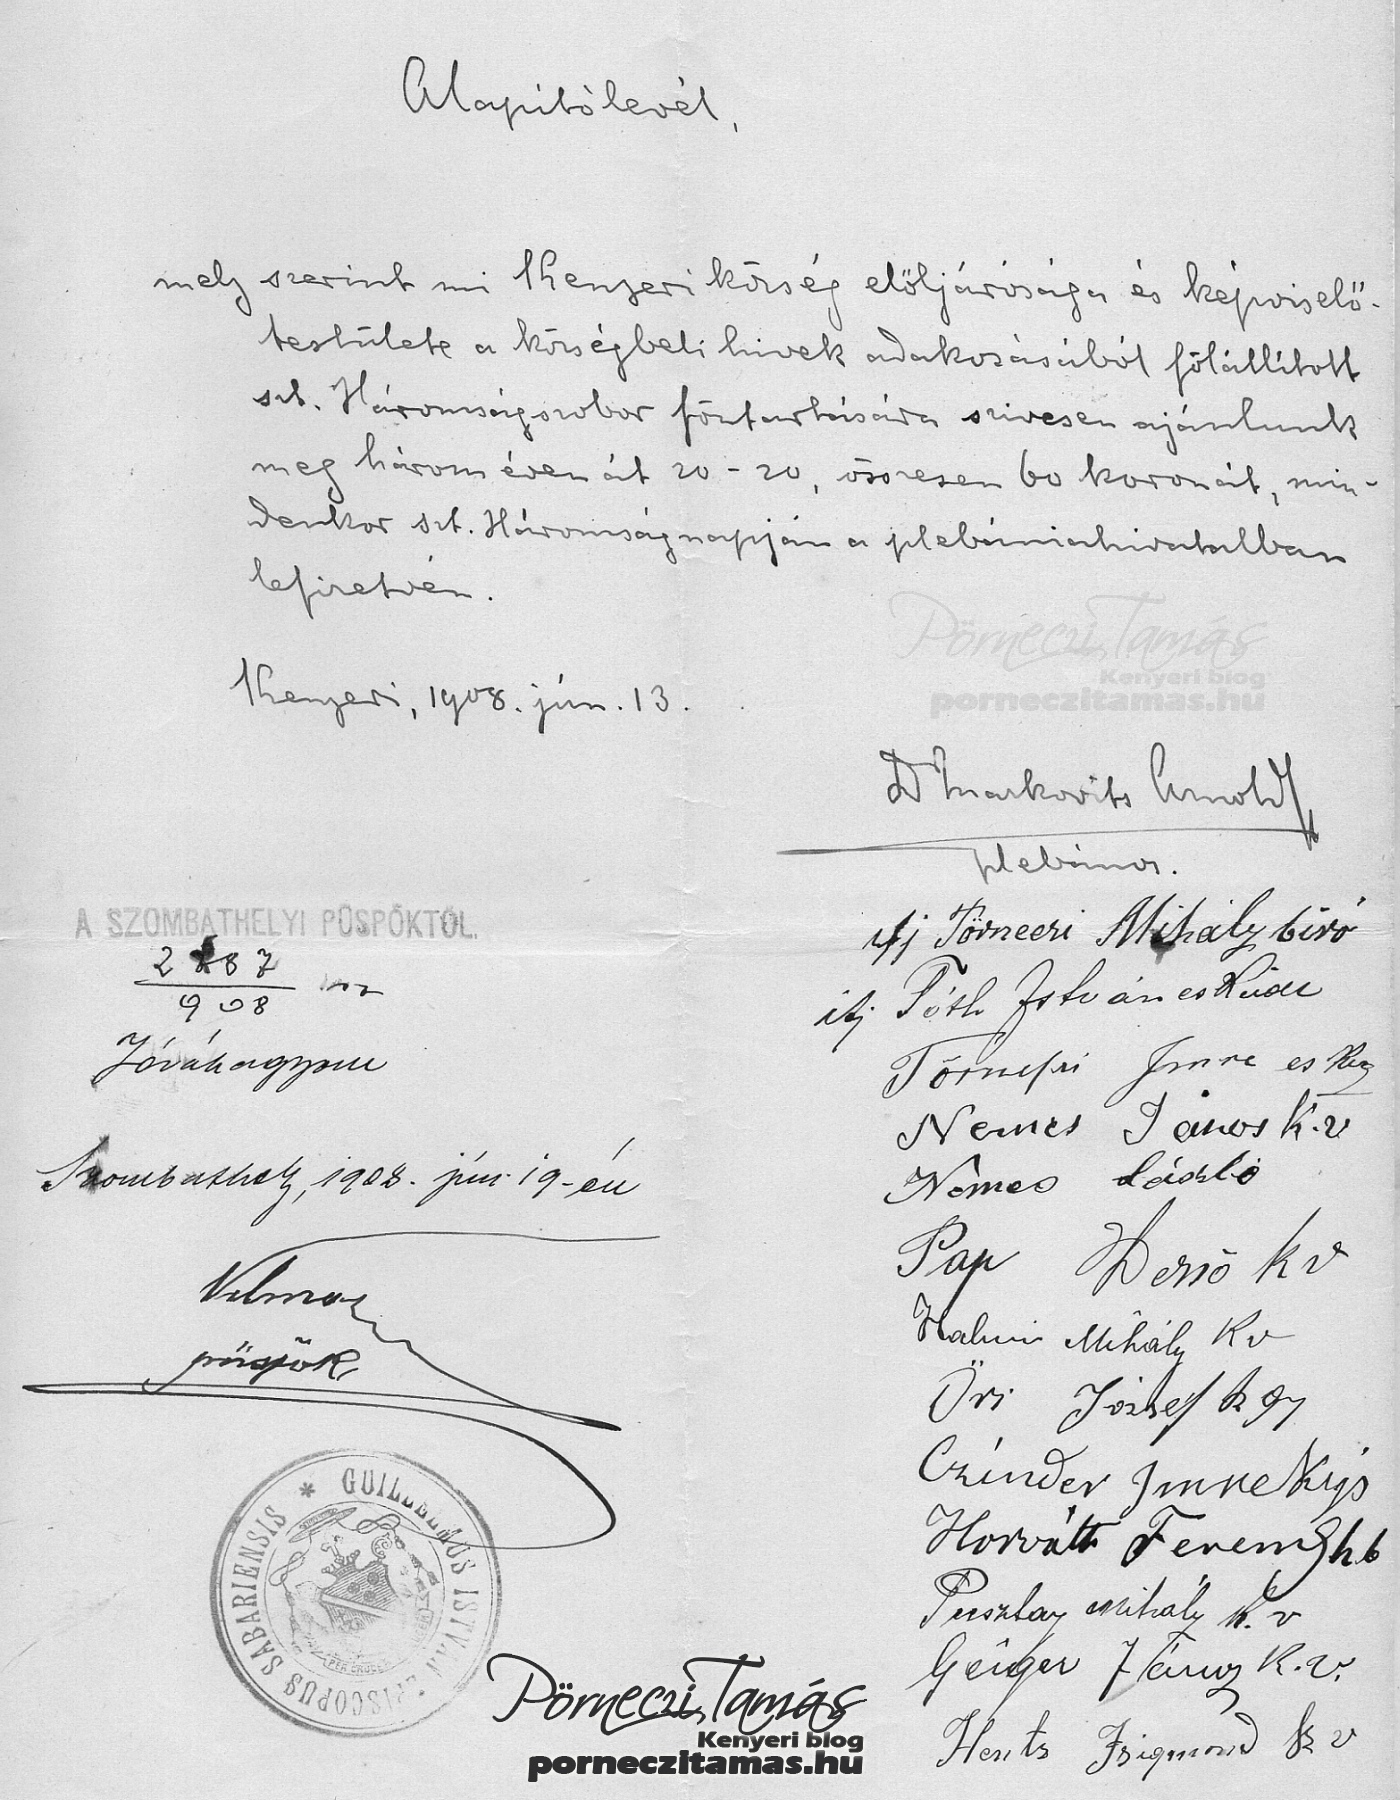 Alapítólevél,
mely szerint mi Kenyeri község előljárósága és képviselő-
testülete a községbeli hivek adakozásából fölállított
szt. Háromságszobor föntartására szivesen ajánlunk
meg három éven át 20-20, összesen 60 koronát, min-
denkor szt. Háromságnapján a plebániahivatalban
lefizetvén.
Kenyeri, 1908. jún. 13.
Pörneczi Tamás
Kenyeri blog
porneczitamas.hu
Dr Markovits Arnold
plebános.
ifj Pörneczi Mihály biró
ifj Tóth István esküdt
Imre
Nemes János k.v
Németh László
Pap Dezső k v
Halmi Mihály k v
Őri József
Czinder Imre
Horváth Ferencz
Pusztay Mihály k. v
Geiger János k. v.
Hentz Zsigmond k v
A SZOMBATHELYI PÜSPÖKTŐL.
2887
908
Jóváhagyom
Szombathely, 1908. jún. 19-én
Vilmos
püspök
* GUILLELMUS ISTVÁN EPISCOPUS SABARIENSIS
PER CRUCEM
Pörneczi Tamás
Kenyeri blog
porneczitamas.hu